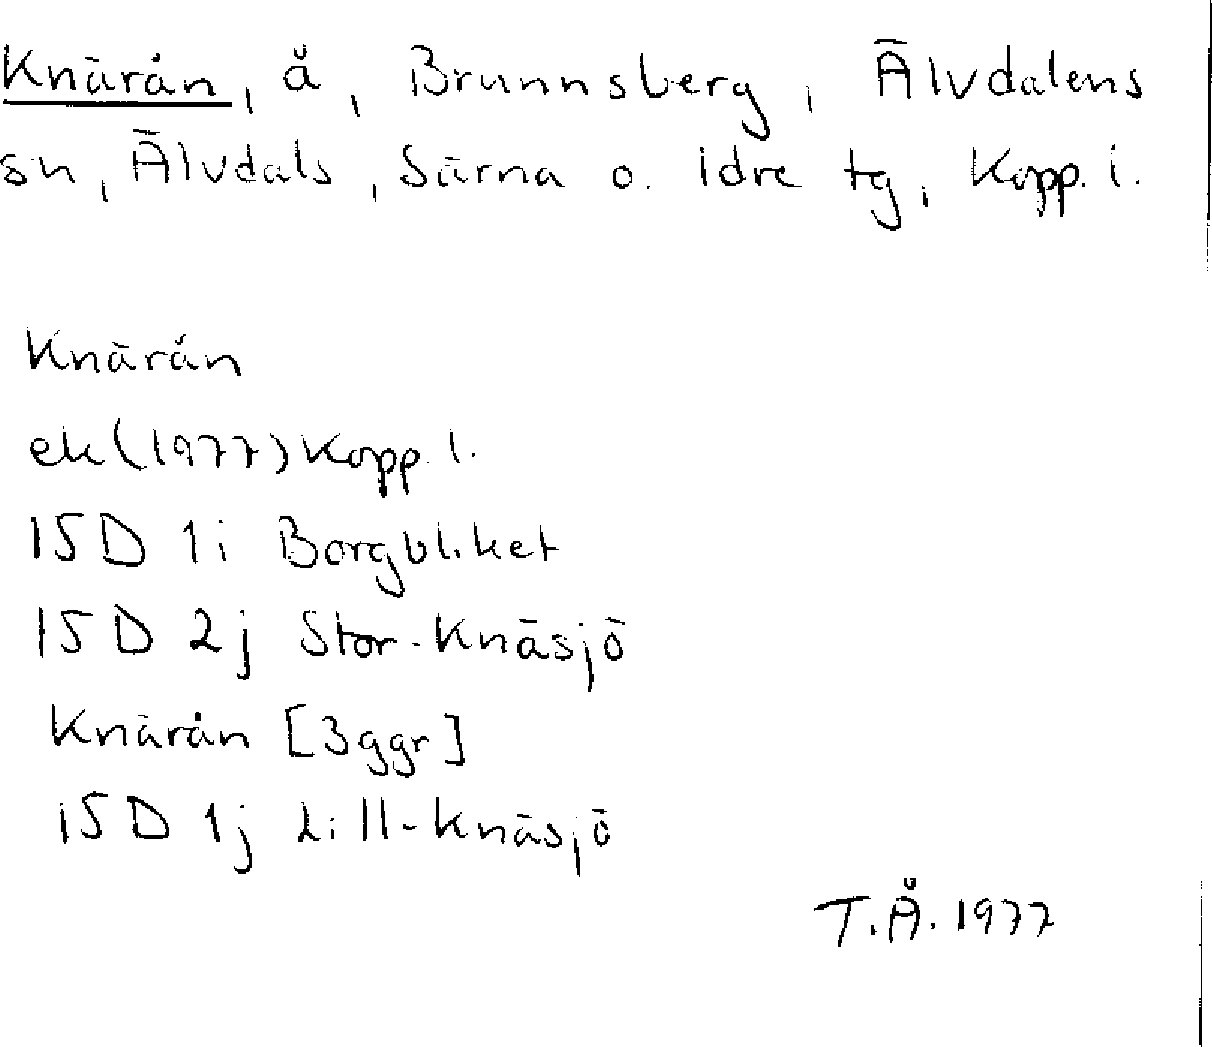 Knärån, å, Brunnsberg, Älvdalens
sn, Älvdals, Särna o. Idre tg, Kopp. l.
Knärån
ek (1977) Kopp. l.
15D 1i Borgbliket
15D 2j Stor-Knäsjö
Knärån [3ggr]
15D 1j Lill-Knäsjö
T.Å. 1977